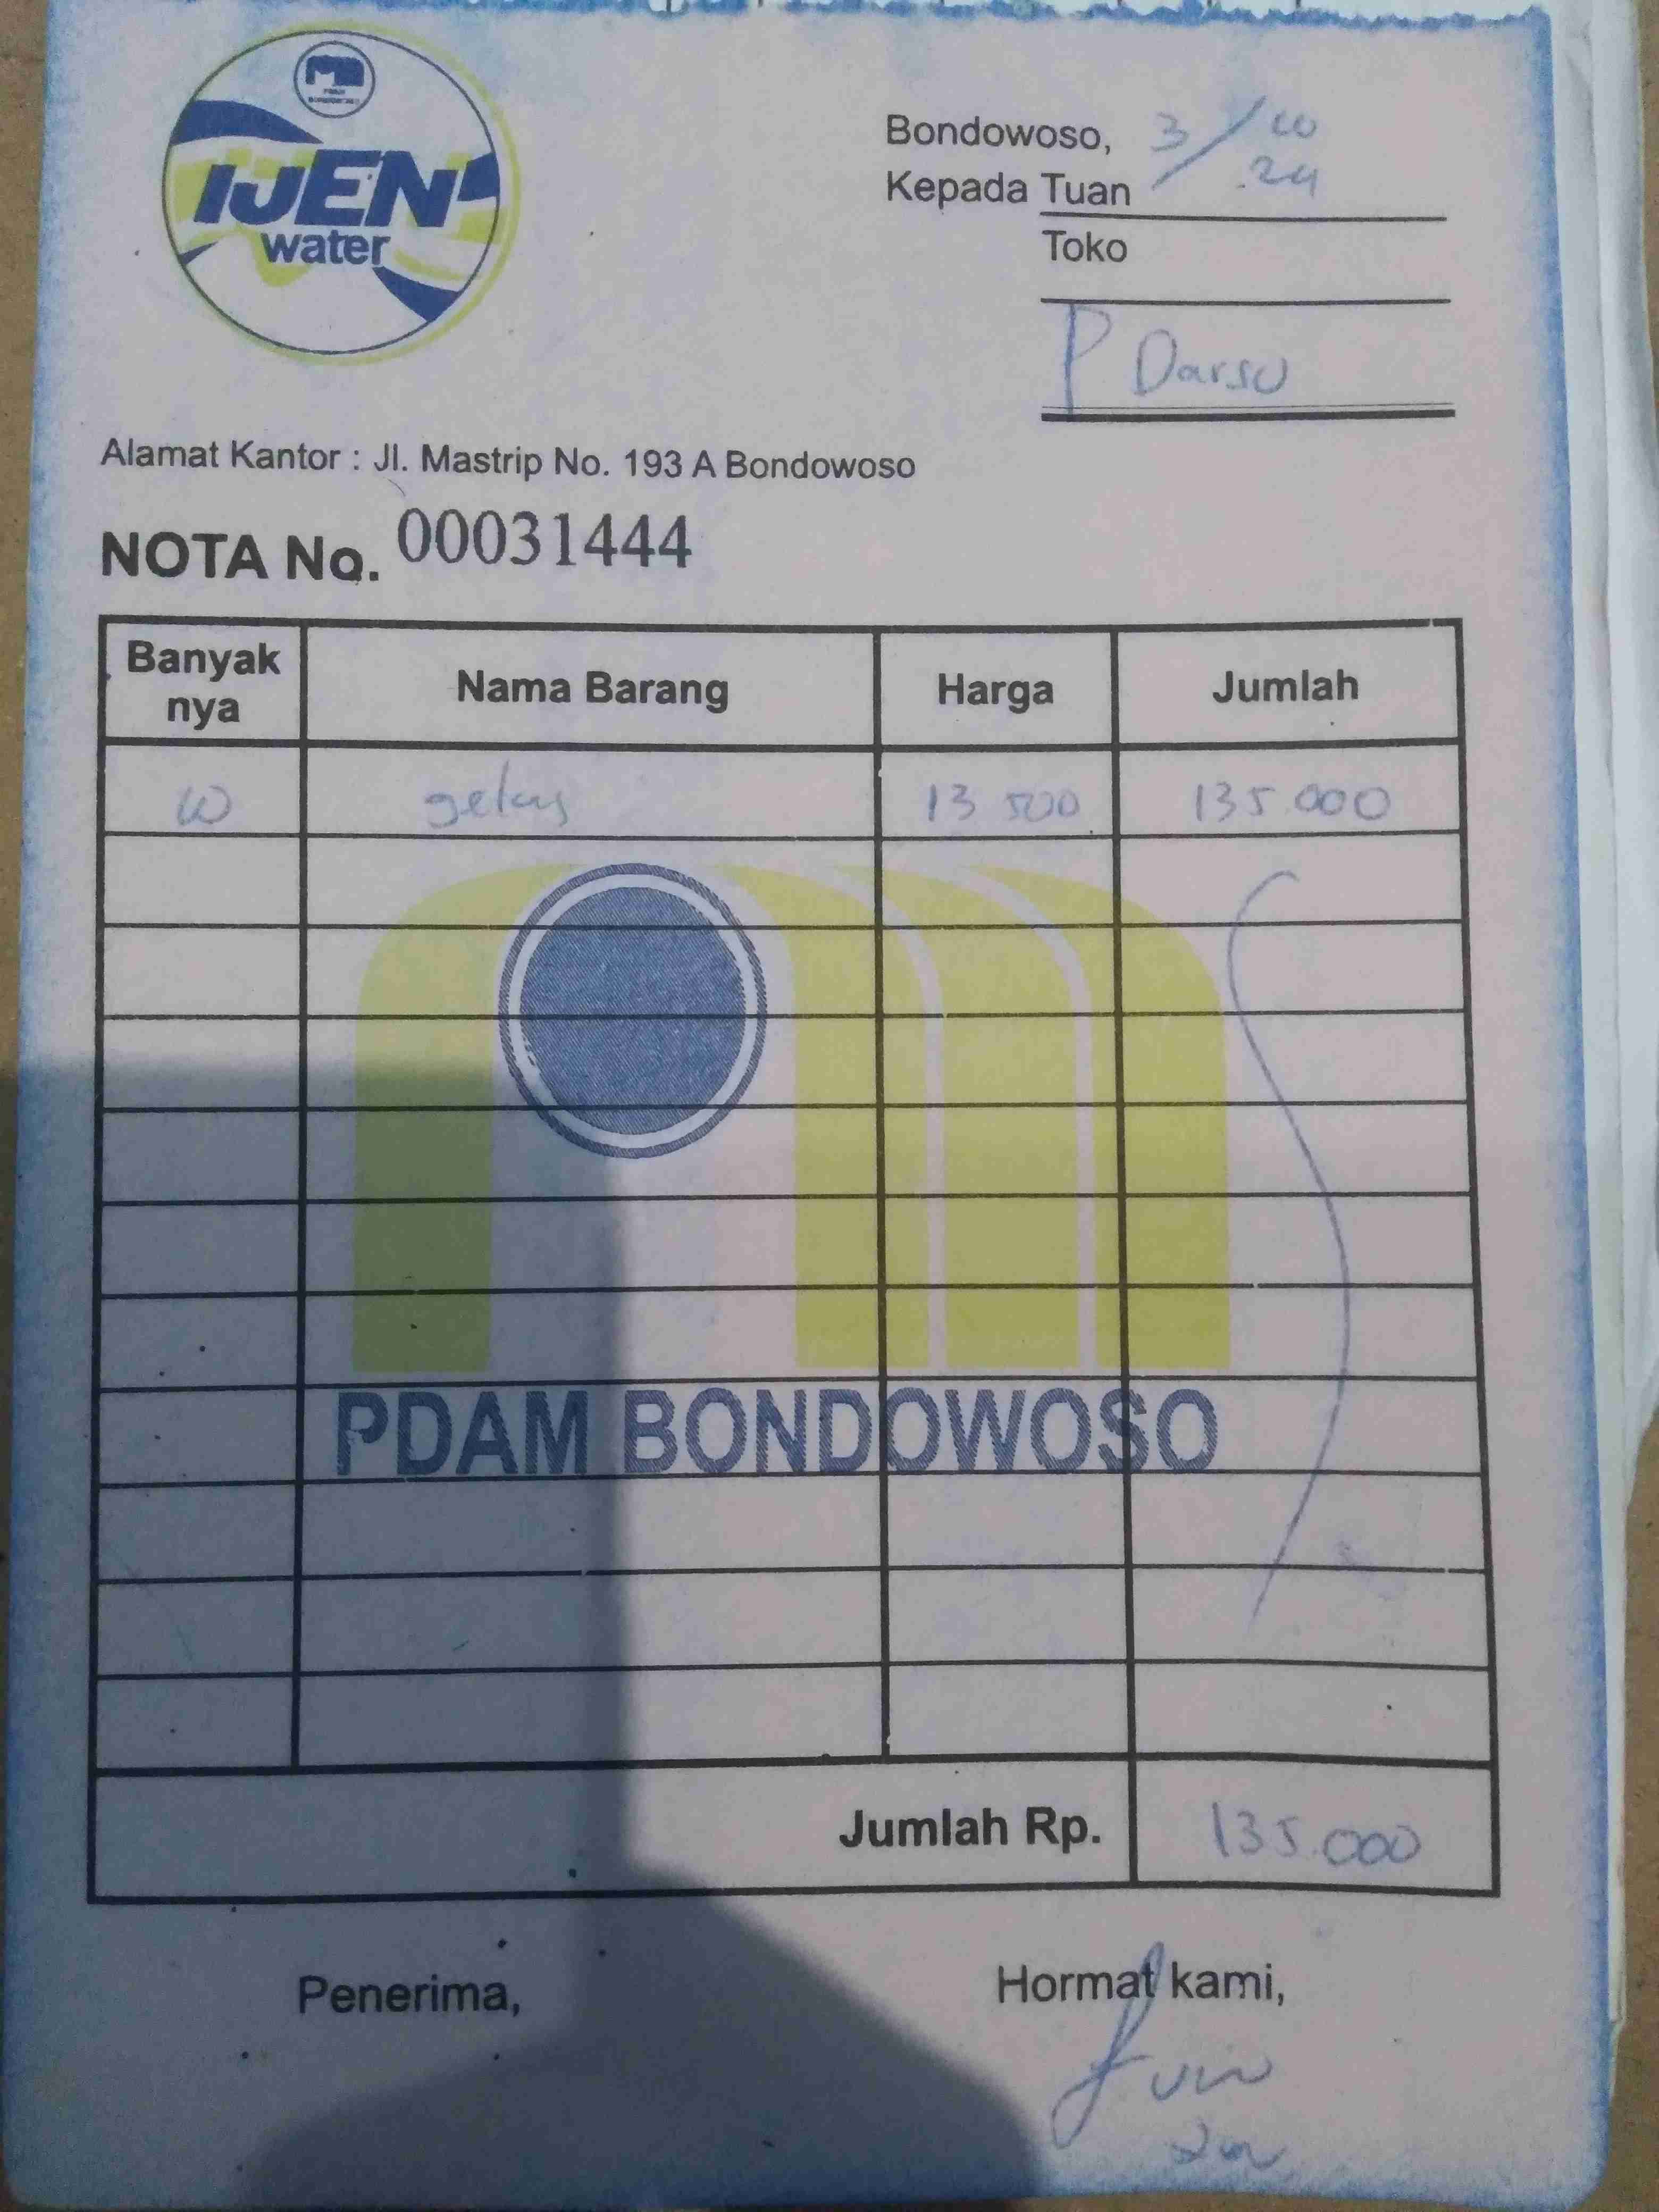 IJEN
water
Bondowoso, 3/10
24
Kepada Tuan
Toko
P Darso
Alamat Kantor : Jl. Mastrip No. 193 A Bondowoso
NOTA No. 00031444
Banyak nya Nama Barang Harga Jumlah
10 gelas 13 500 135.000
PDAM BONDOWOSO
Jumlah Rp. 135.000
Penerima, Hormat kami,